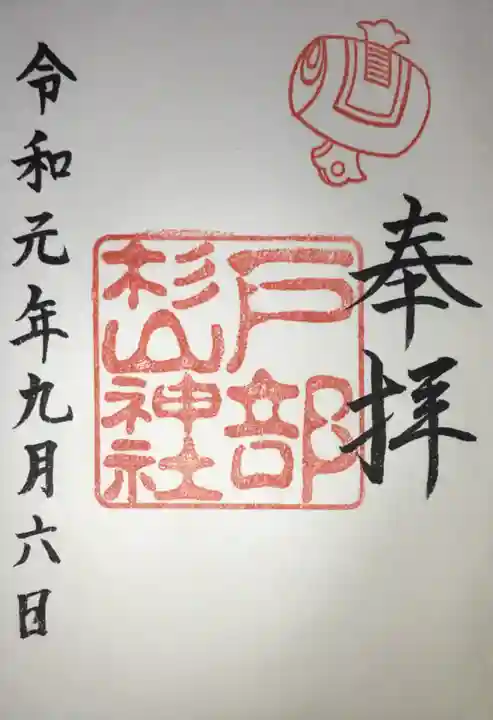 奉拝
戸部
杉山
神社
令和元年九月六日